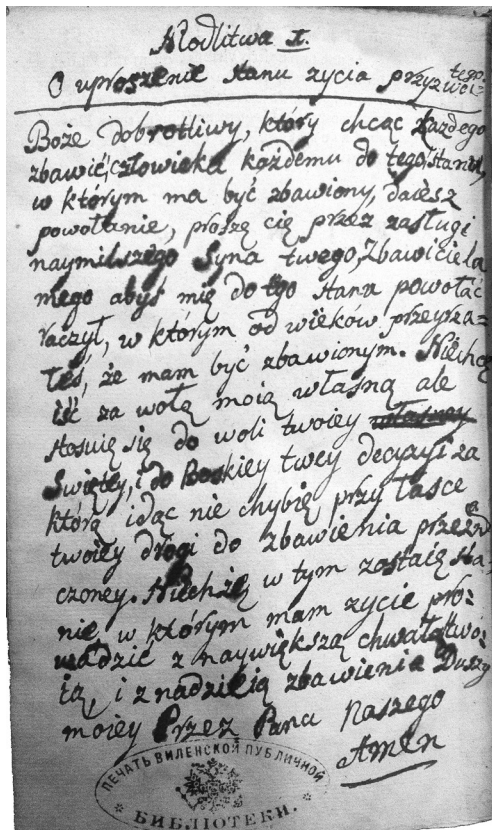 Modlitwa I.
O uproszenie stanu zycia przyzwoi=
tego.
Boże dobrotliwy, który chcąc każdego
zbawić człowieka każdemu do tego stanu,
w którym ma być zbawiony, daiesz
powołanie, proszę cię przez zasługi
naymilszego Syna twego, Zbawiciela
mego abyś mię do tgo stanu powołać
raczył, w którym od wieków przeyrza=
łeś, że mam być zbawionym. Niechcę
iść za wolą moią własną ale
stosuię się do woli twoiey własney
Swiętey, i do Boskiey twey decyzyi za
którą idąc nie chybię przy łasce
twoiey drogi do zbawienia przezna=
czoney. Niechże w tym zostaię sta=
nie, w którym mam zycie pro=
wadzic z naywiększą chwałą two=
ią, i z nadzieią zbawienia Duszy
moiey Przez Pana Naszego
Amen
ПЕЧАТЬ ВИЛЕНСКОЙ ПУБЛИЧНОЙ
БИБЛІОТЕКИ.